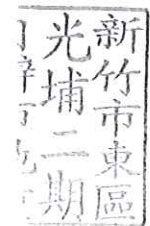 新竹市東區
光埔二期